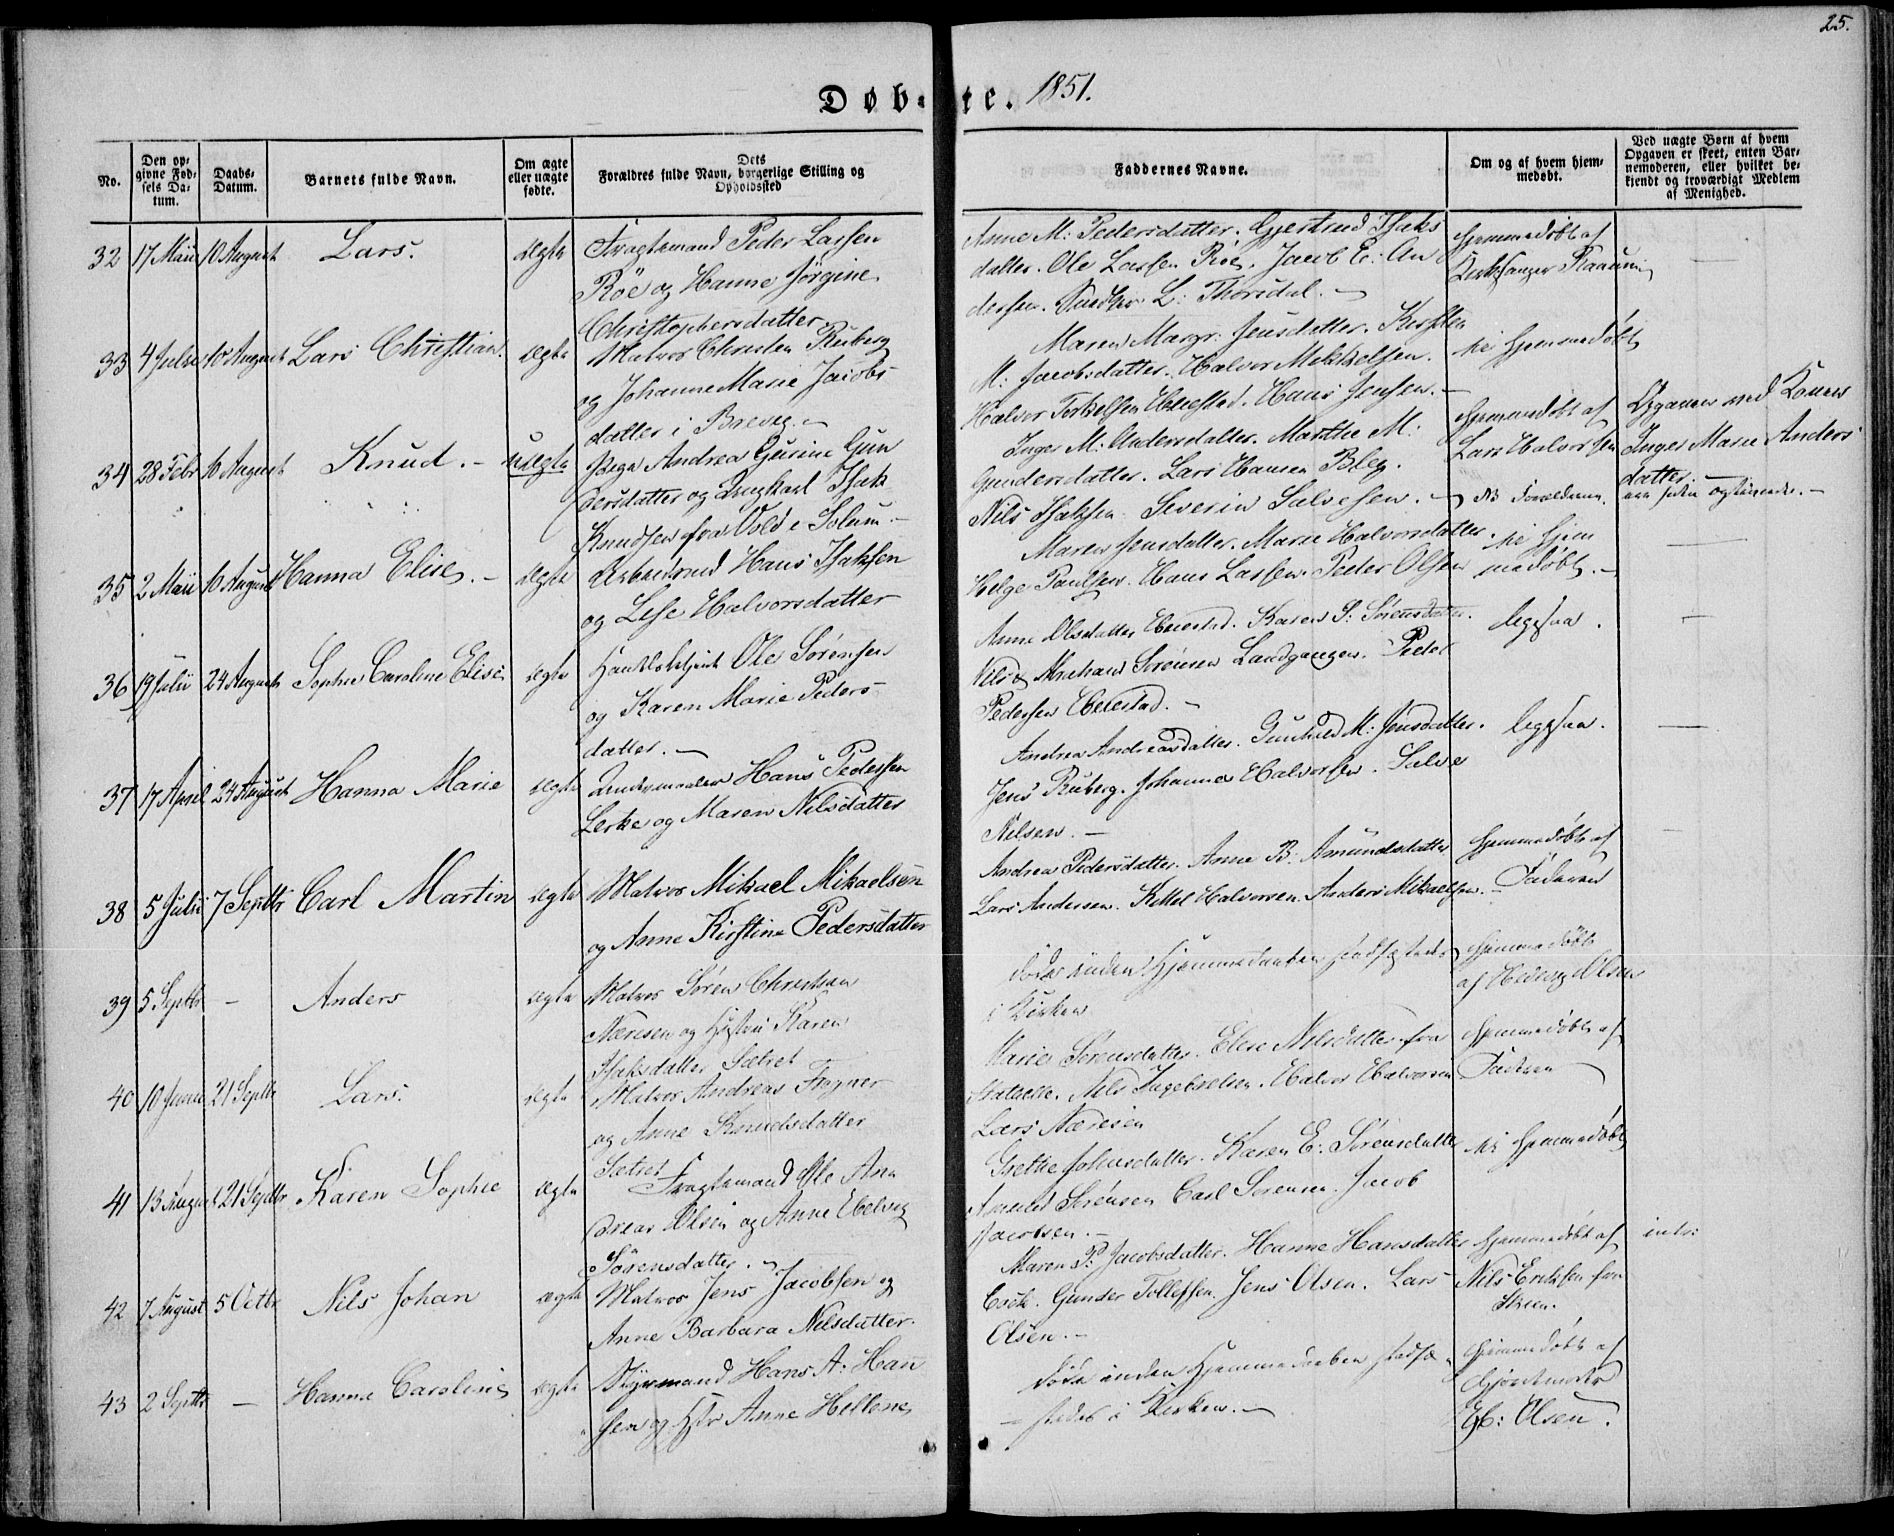 25.
Døbte. 1851.
No.
Den opgivne Fødsels Datum.
Daabs-Datum.
Barnets fulde Navn.
Om ægte eller uægte fødte.
Dets Forældres fulde Navn, borgerlige Stilling og Opholdssted
Faddernes Navne.
Om og af hvem hjemmedøbt.
Ved uægte Børn af hvem Opgaven er skeet, enten Barnemoderen, eller hvilket bekjendt og troværdigt Medlem af Menighed.
32 17 Maii 10 August Lars. ægte Fragtemand Peder Larsen
Röe og Hanne Jörgine
Christophersdatter
Anne M: Pedersdatter. Gjertrud Isaks
datter. Ole Larsen Röe. Jacob E: An
dersen. L: Thorsdal. -
Hjemmedøbt af
Kirkesanger
33 4 Julii 10 August Lars Christian. ægte Matros Christen Ruberg
og Johanne Marie Jacobs
datter i Brevig. -
Maren Margr. Jensdatter. Kirsten
M: Jacobsdatter. Halvor Mikkelsen.
Halvor Torkelsen Heiestad. Hans Jensen. -
ei hjemmedøbt
34 28 Febr 10 August Knud. - uægte Pige Andrea Gurine Gun
dersdatter og Ungkarl Isak
Knudsen fra Vold i Solum. -
Inger M: Andersdatter. Marthe M:
Gundersdatter. Lars Hansen Bleg.
Nils Isaksen. Severin Salvesen. -
Hjemmedøbt af
Lars Halvorsen
NB Forældrene
Opgaven med Konen
Inger Marie Anders
datter
35 2 Maii 10 August Hanna Elise. - ægte Arbeidsmd Hans Isaksen
og Lise Halvorsdatter
Maren Jensdatter. Marie Halvorsdatter.
Helge Paulsen. Hans Larsen. Peder Olsen
ei hjem
medøbt. -
36 19 Julii 24 August Sophie Caroline Elise ægte Handelsbetjent Ole Sörensen
og Karen Marie Peders
datter. -
Anne Olsdatter Heiestad. Karen S: Sörensdatter.
Nils Abraham Sörensen Landgangen. Peder
Pedersen Heiestad. -
ligesaa.
37 17 April 24 August Hanna Marie ægte Hans Pedersen
Lerke og Maren Nilsdatter
Andrea Andreasdatter. Gunhild M: Jensdatter.
Jens Ruberg. Johannes Halvorsen. Salve
Nilsen. -
ligesaa.
38 5 Julii 7 Septbr Carl Martin ægte Matros Mikael Mikaelsen
og Anne Kirstine Pedersdatter
Andrea Pedersdatter. Anne B. Amundsdatter
Lars Andersen. Kittel Halvorsen. Anders Mikaelsen. -
Hjemmedøbt af
Faderen
39 5 Septbr - Anders ægte Matros Sören Christian
Næresen og Hustru Karen
Isaksdatter Sætret
döde inden Hjemmedaaben stadfæstedes
i Kirken
Hjemmedøbt
af Hedevig Olsen
40 10 Junii 21 Septbr Lars. ægte Matros Andreas Fragner
og Anne Knudsdatter
Sætret
Marie Sörensdatter. Elise Nilsdatter fra
Stathelle. Nils Ingebretsen. Halvor Halvorsen
Lars Næresen
Hjemmedøbt af
Faderen
41 13 August 21 Septbr Karen Sophie ægte Fragtemand Ole An
dreas Olsen og Anne Hedevig
Sörensdatter. -
Grethe Johnsdatter. Karen E: Sörensdatter
Amund Sörensen Carl Sörensen. Jacob
Jacobsen. -
ei hjemmedøbt
42 7 August 5 Octbr Nils Johan ægte Matros Jens Jacobsen og
Anne Barbara Nilsdatter.
Maren P: Jacobsdatter. Hanne Hansdatter
Gunder Tollefsen. Jens Olsen. Lars
Olsen. -
Hjemmedøbt af
Nils Eriksen fra
Skien.
43 2 Septbr - Hanna Caroline ægte Styrmand Hans A. Han
sen og Hstr Anne Hellene
döde inden Hjemmedaaben stadfæ
stedes i Kirken. -
Hjemmedøbt af
Gjordemoder
Olsen.